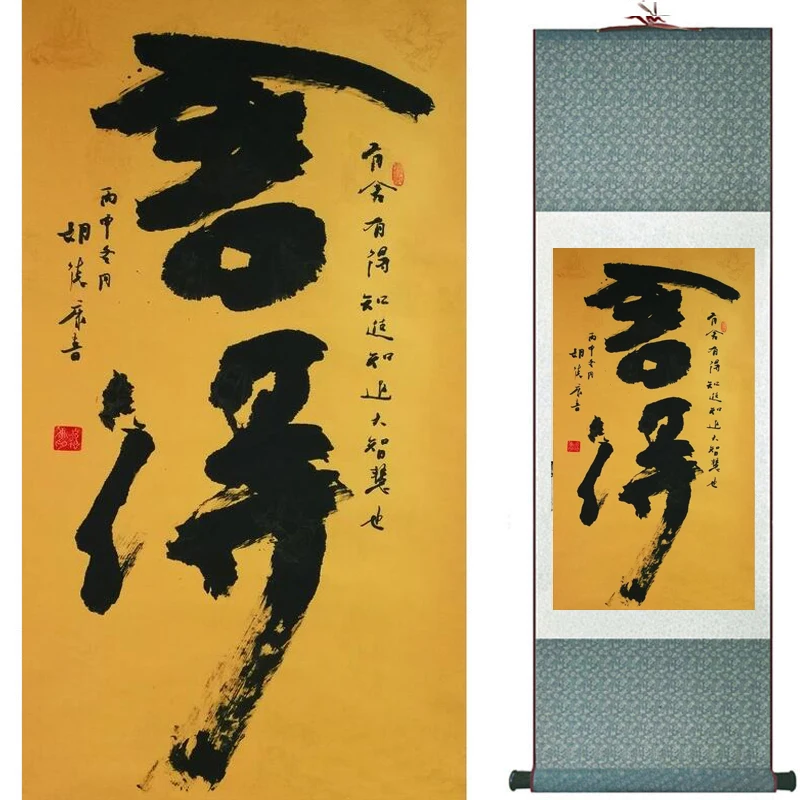 舍得
有舍有得知進知退大智慧也
丙申冬月
胡德康書
舍得
有舍有得知進知退大智慧也
丙申冬月
胡德康書